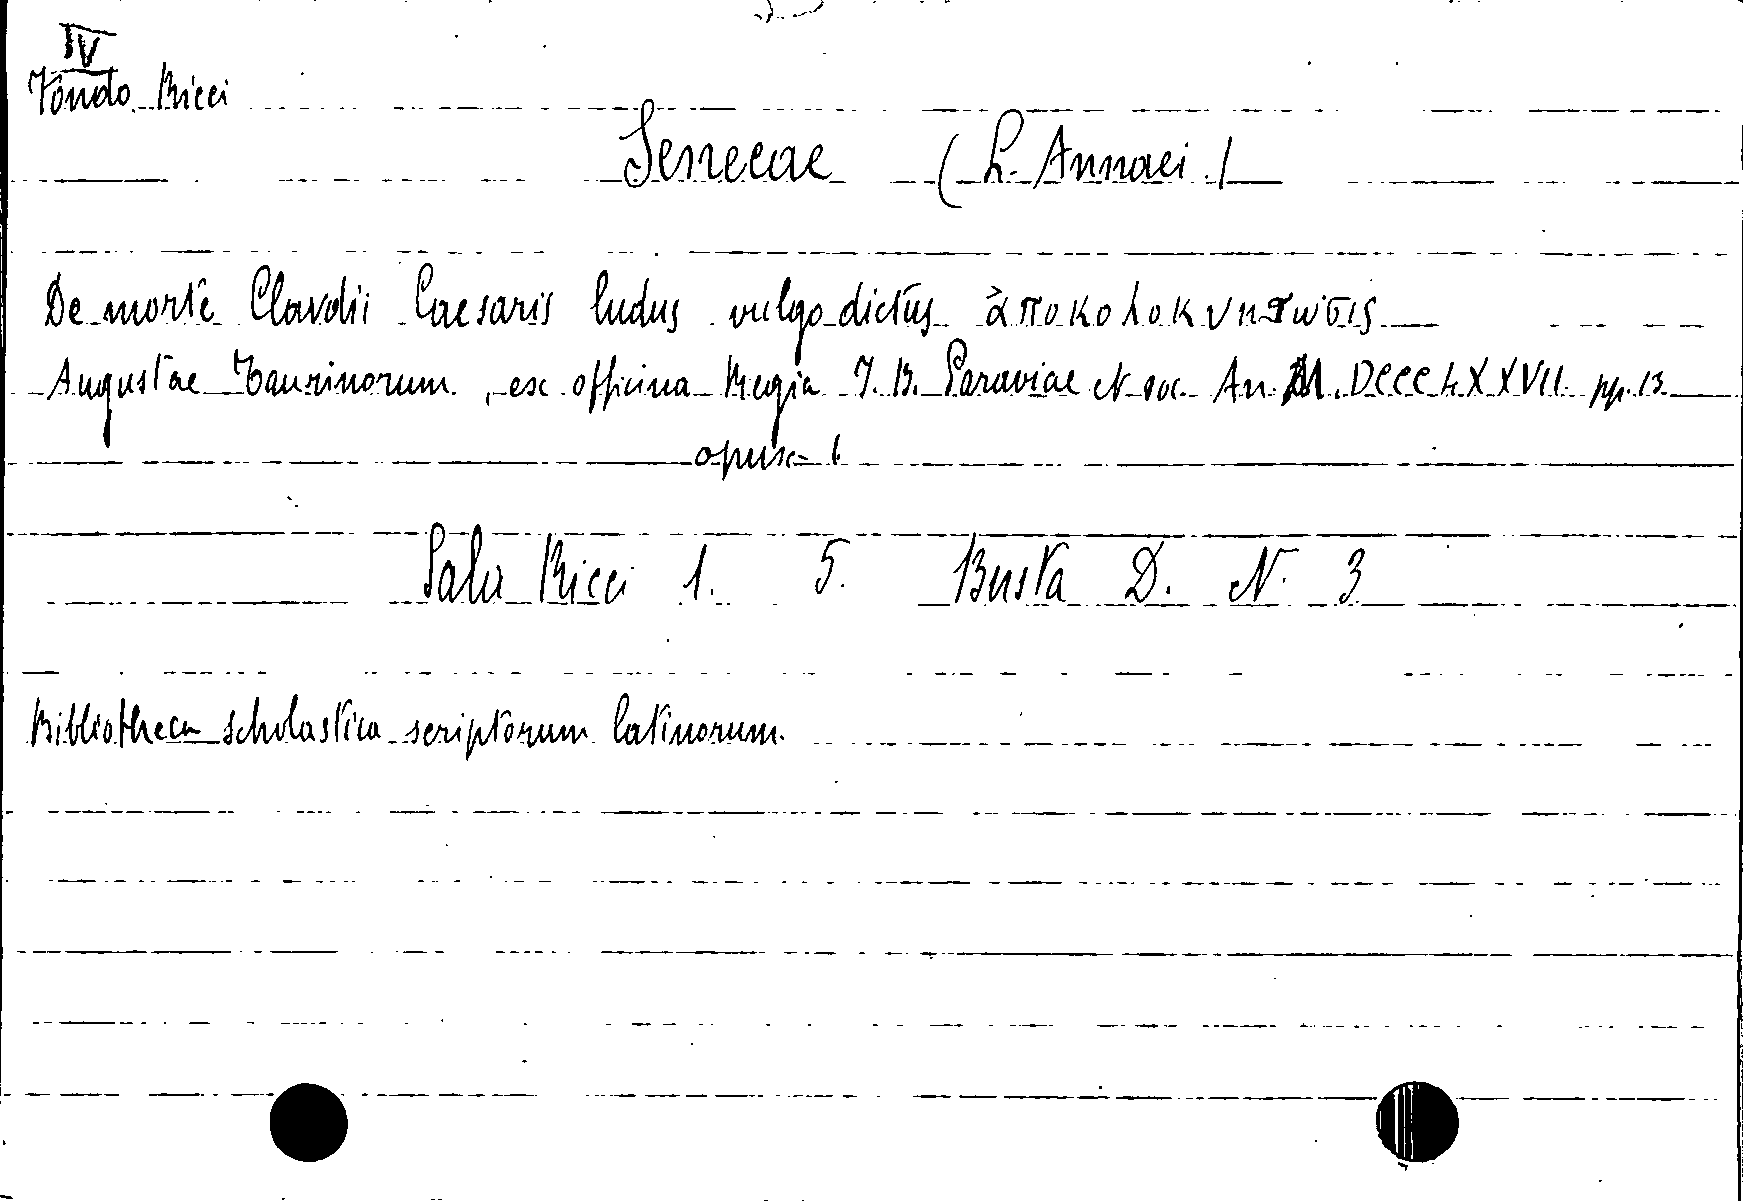 IV
Fondo Ricci
Senecae (L. Annaei)
De morte Claudii Caesaris ludus vulgo dictus ἀποκολοκύντωσις
Augustae Taurinorum, ex officina Regia I. B. Paraviae et soc. An. M. DCCCLXXVII pp. 13
opusc. 1
Sala Ricci 1. 5. Busta D. N. 3
Bibliotheca scholastica scriptorum latinorum.